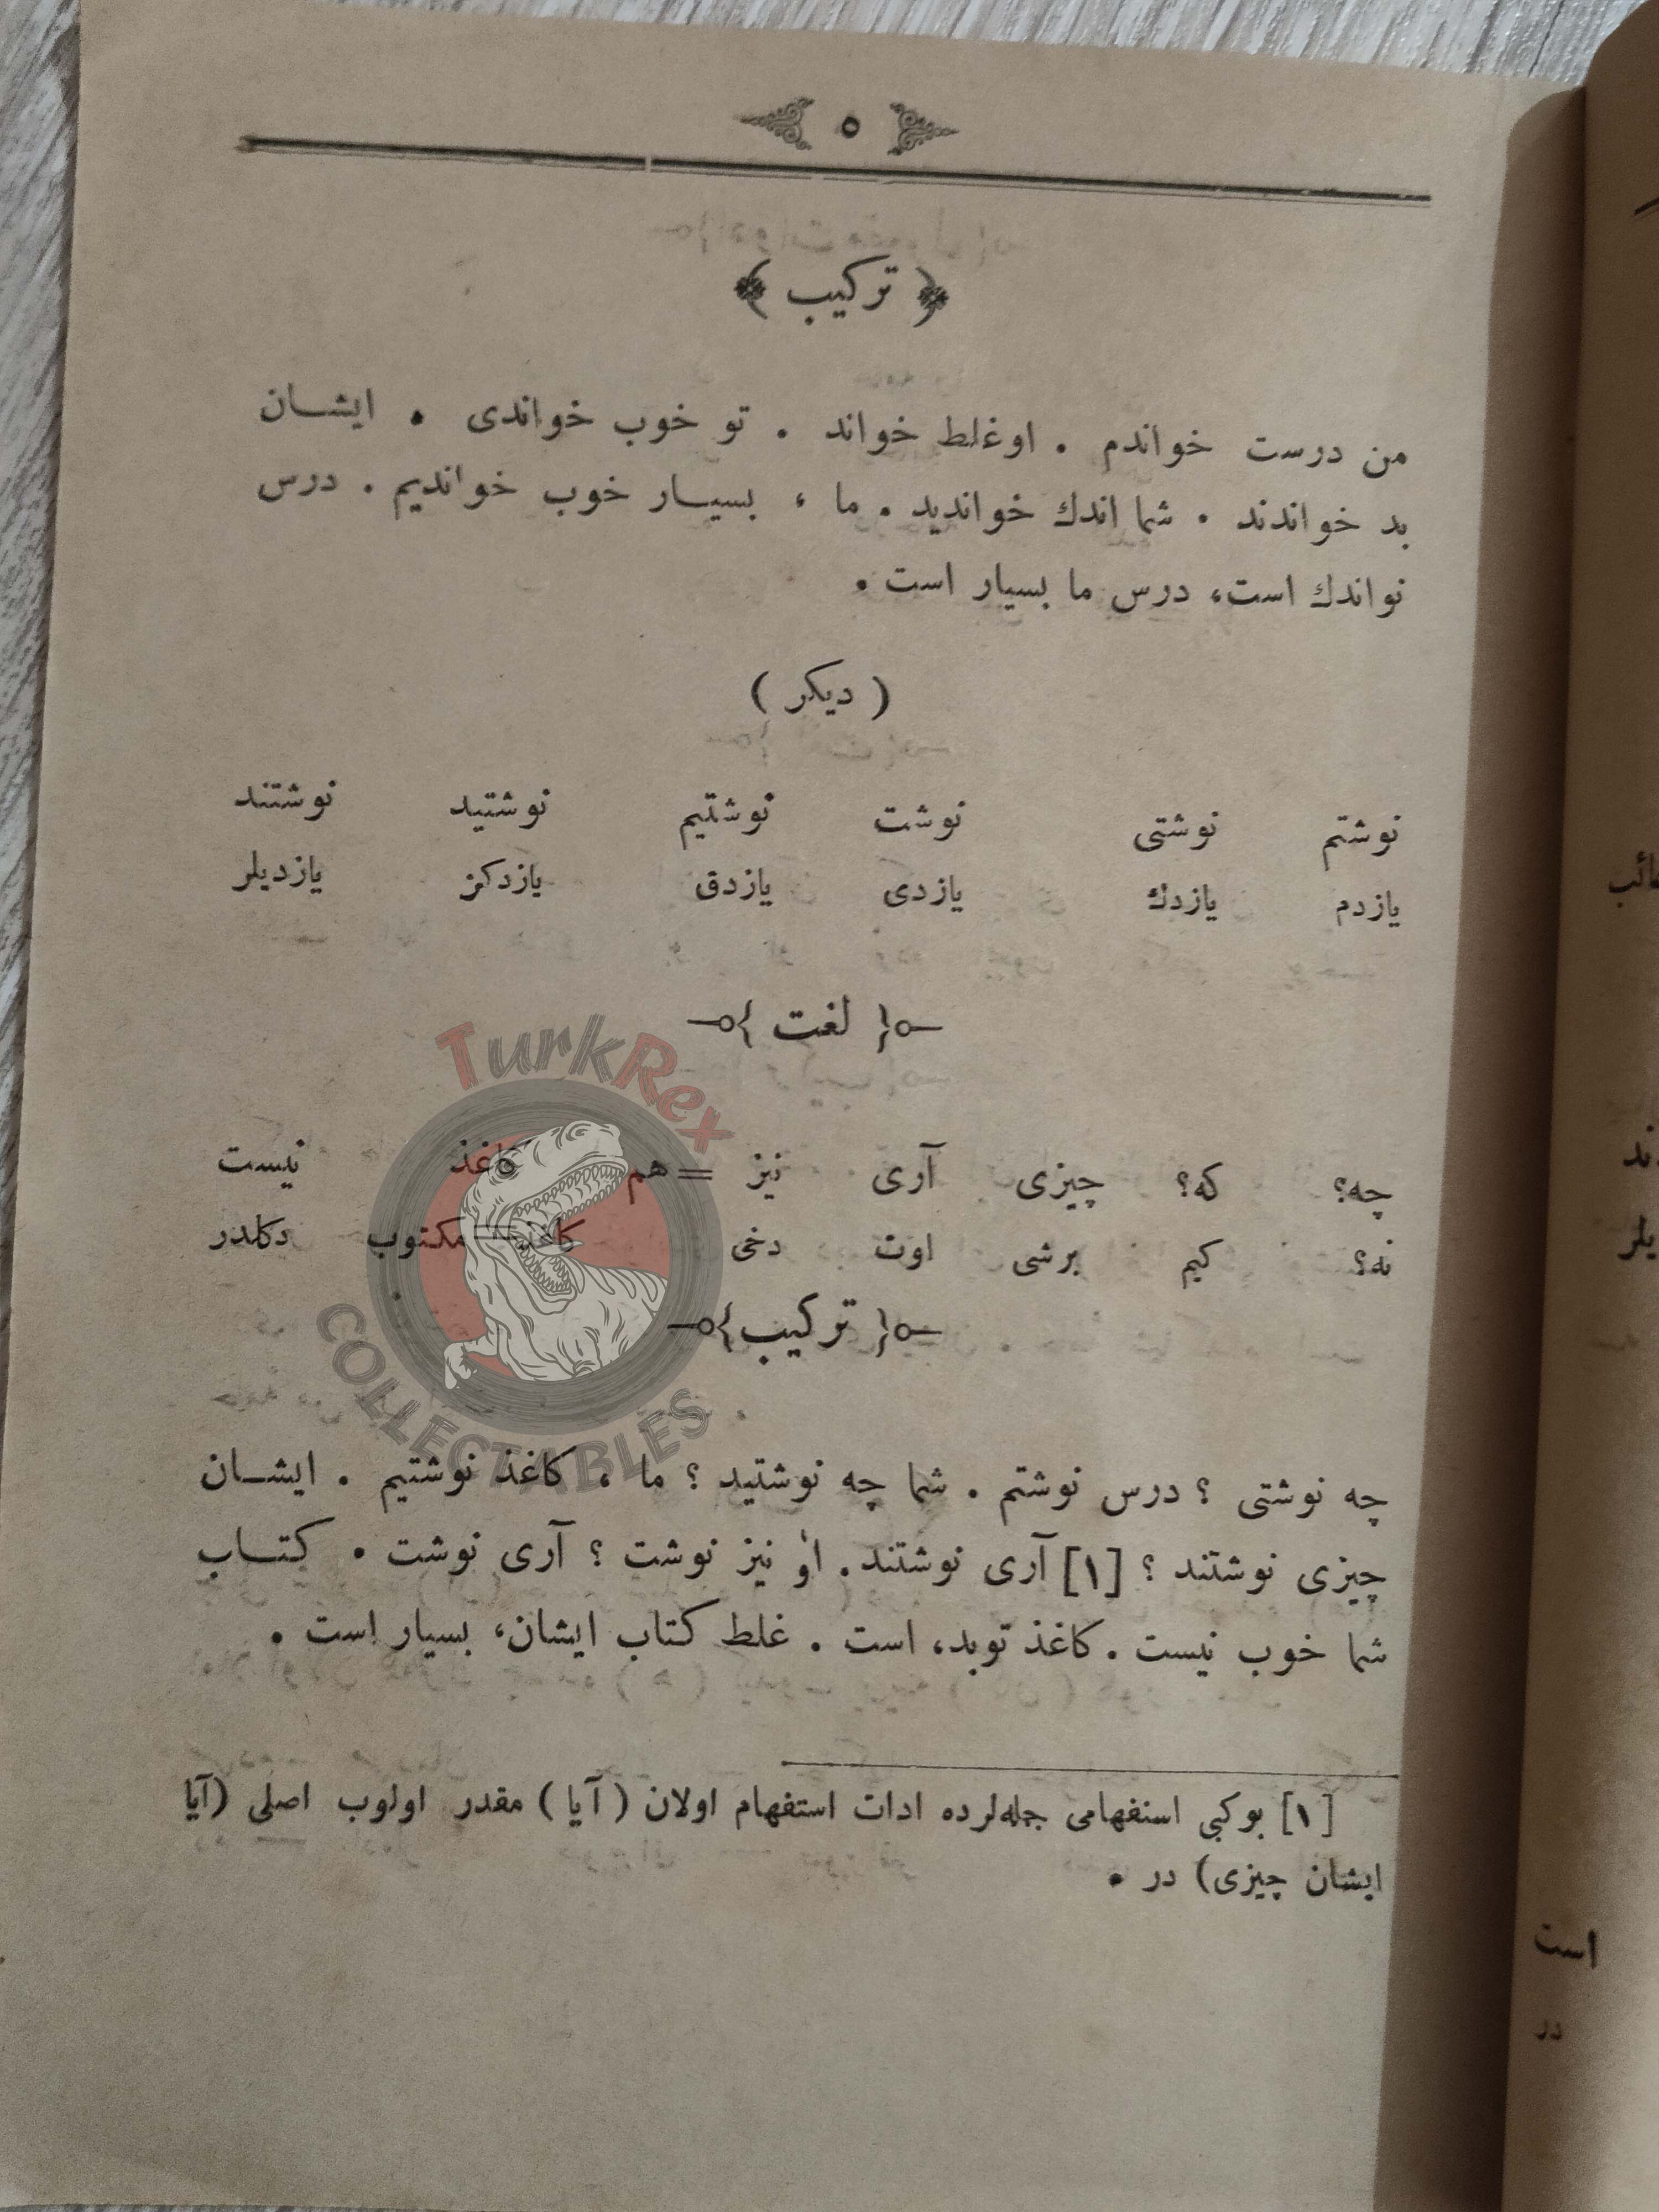 ٥
﴿ تركيب ﴾
من درست خواندم . او غلط خواند . تو خوب خواندى . ايشــان
بد خواندند . شما اندك خوانديد . ما ، بسيــار خوب خوانديم . درس
تو اندك است، درس ما بسيار است .
( ديكر )
نوشتم نوشتى نوشت نوشتيم نوشتيد نوشتند
يازدم يازدك يازدى يازدق يازدكز يازديلر
{ لغت }
چه؟ كه؟ چيزى آرى نيز = هم كاغذ نيست
نه؟ كيم برشى اوت دخى كاغد مكتوب دكلدر
{ تركيب }
چه نوشتى ؟ درس نوشتم . شما چه نوشتيد ؟ ما ، كاغذ نوشتيم . ايشــان
چيزى نوشتند ؟ [١] آرى نوشتند . او نيز نوشت ؟ آرى نوشت . كتــاب
شما خوب نيست . كاغذ تو بد، است . غلط كتاب ايشان، بسيار است .
[١] بوكبى استفهامى جمله‌لرده ادات استفهام اولان ( آيا ) مقدر اولوب اصلى (آيا
ايشان چيزى) در .
TurkRex
COLLECTABLES
ائب
ند
يلر
است
در